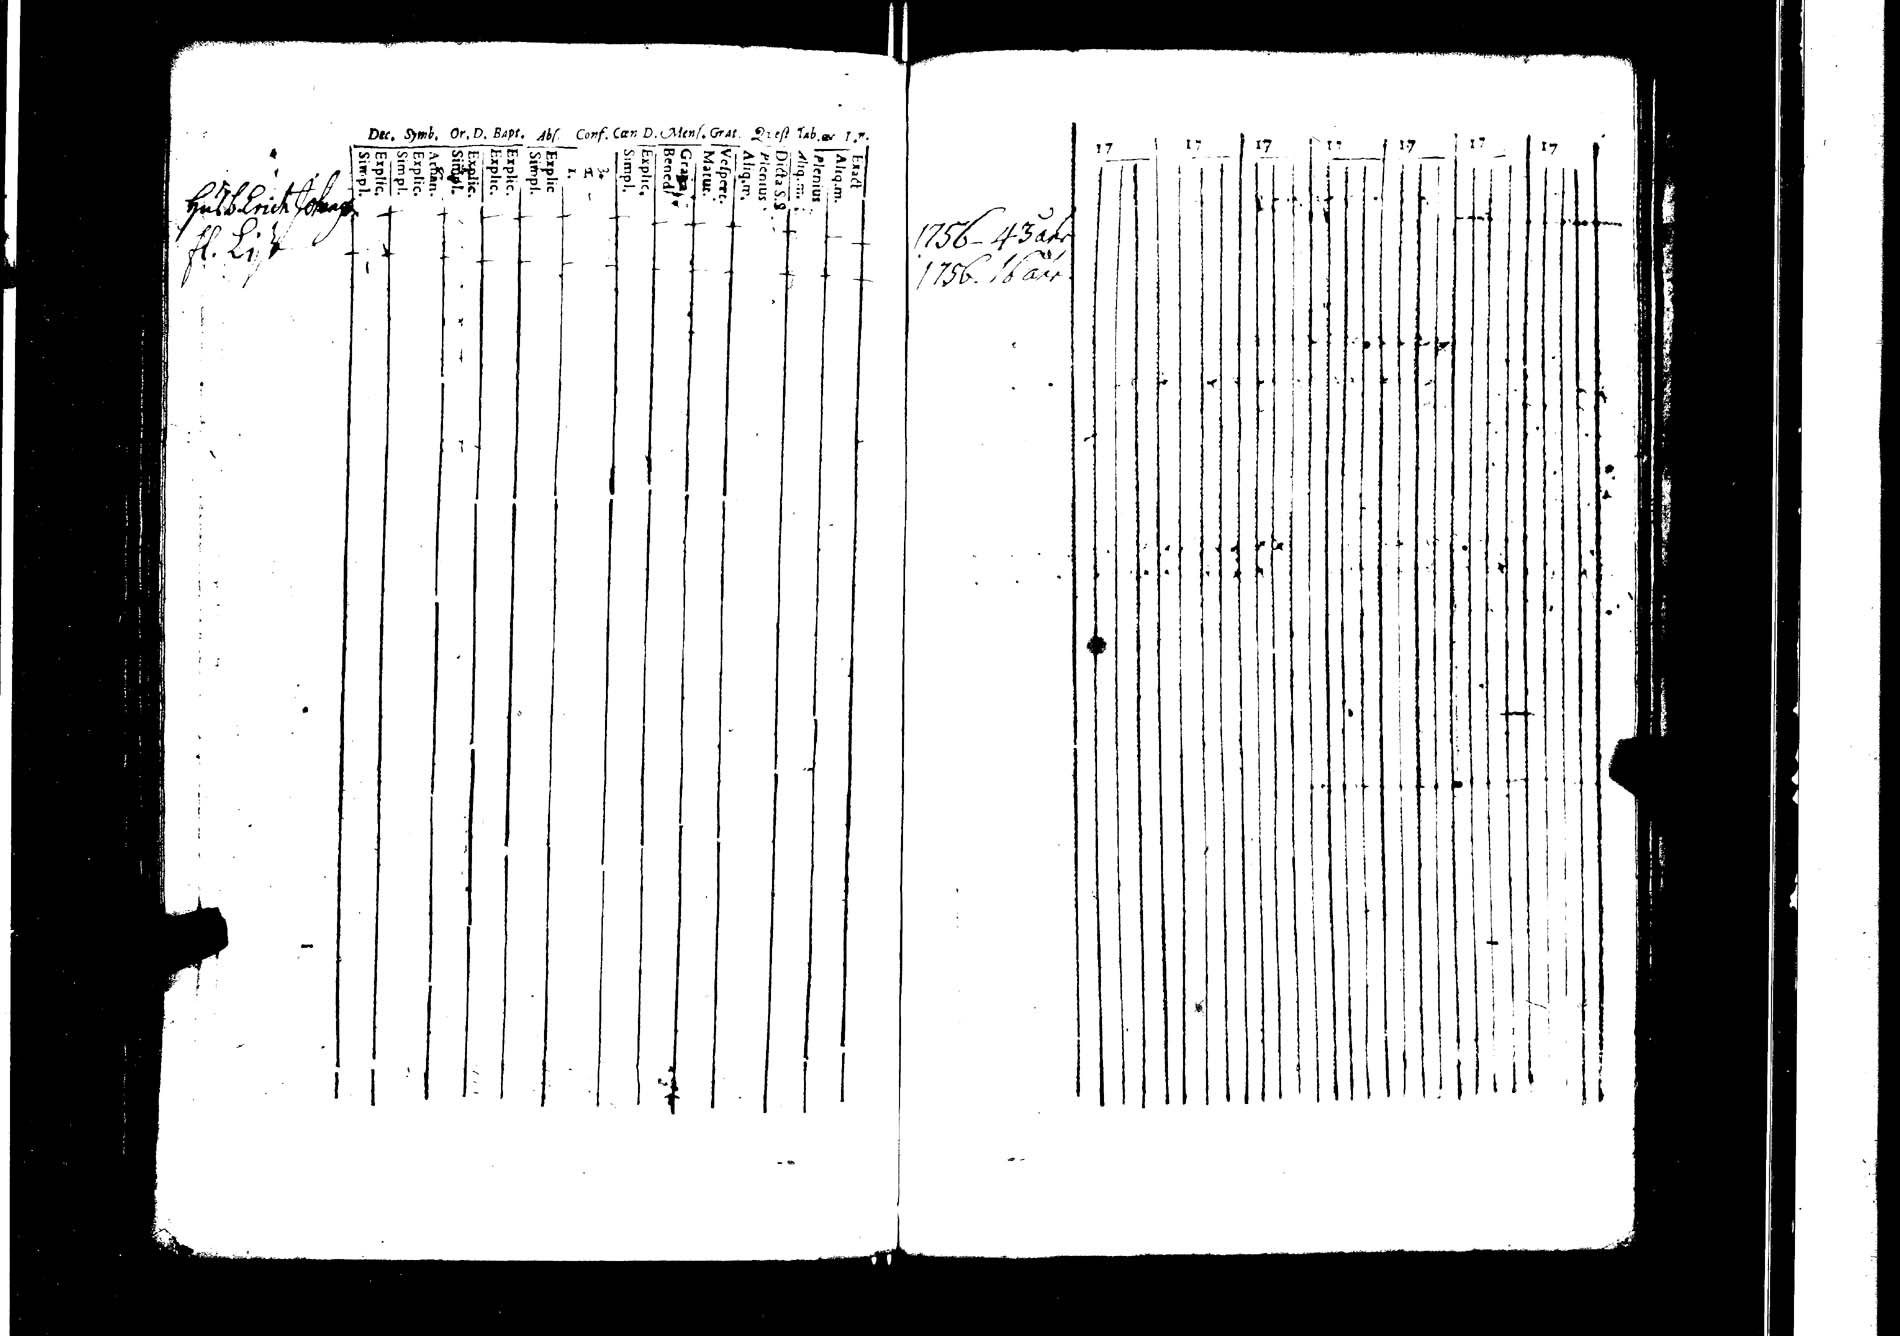 Dec. Symb. Or. D. Bapt. Abs. Conf. Cœn D. Mens. Grat. Quest Tab. œc I.n.
Simpl. Explic. Simpl. Explic. Athan. Simpl. Explic. Explic. Explic. Simpl. Explic 1. 2. 3. Simpl. Explic. Bened. Matut. Vespert. Aliq.m. Plenius Dicta S.S Aliq.m. Plenius Aliq.m. Exact
Erich
fl. Lis
17 17 17 17 17 17 17
1756 - 43 åhr
1756. 16 åhr.